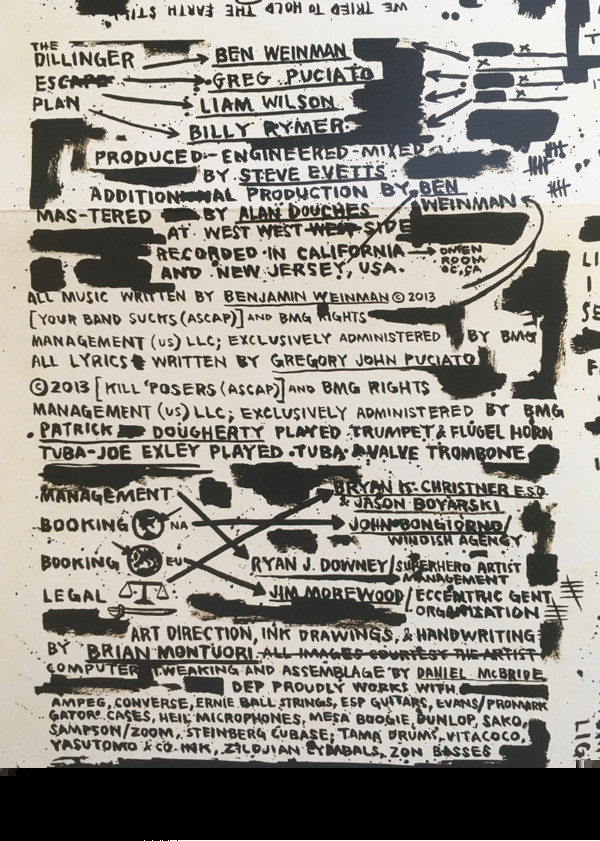 WE TRIED TO HOLD THE EARTH STILL
THE
DILLINGER BEN WEINMAN
ESCAPE GREG PUCIATO
PLAN LIAM WILSON
BILLY RYMER
PRODUCED - ENGINEERED - MIXED
BY STEVE EVETTS
ADDITIONAL PRODUCTION BY BEN
WEINMAN
MAS-TERED BY ALAN DOUCHES
AT WEST WEST WEST SIDE
RECORDED IN CALIFORNIA → OMEN
ROOM
AND NEW JERSEY, USA. OC, CA
ALL MUSIC WRITTEN BY BENJAMIN WEINMAN © 2013
[YOUR BAND SUCKS (ASCAP)] AND BMG RIGHTS
MANAGEMENT (US) LLC; EXCLUSIVELY ADMINISTERED BY BMG
ALL LYRICS WRITTEN BY GREGORY JOHN PUCIATO
© 2013 [KILL POSERS (ASCAP)] AND BMG RIGHTS
MANAGEMENT (US) LLC; EXCLUSIVELY ADMINISTERED BY BMG
PATRICK DOUGHERTY PLAYED TRUMPET & FLUGEL HORN
TUBA-JOE EXLEY PLAYED TUBA & VALVE TROMBONE
MANAGEMENT BRYAN K. CHRISTNER ESQ
& JASON BOYARSKI
BOOKING NA JOHN BONGIORNO/
WINDISH AGENCY
BOOKING EU RYAN J. DOWNEY/SUPERHERO ARTIST
MANAGEMENT
LEGAL JIM MOREWOOD/ECCENTRIC GENT
ORGANISATION
ART DIRECTION, INK DRAWINGS, & HANDWRITING
BY BRIAN MONTUORI ALL IMAGES COURTESY THE ARTIST
COMPUTER TWEAKING AND ASSEMBLAGE BY DANIEL McBRIDE
DEP PROUDLY WORKS WITH
AMPEG, CONVERSE, ERNIE BALL STRINGS, ESP GUITARS, EVANS/PROMARK
GATOR CASES, HEIL MICROPHONES, MESA BOOGIE, DUNLOP, SAKO,
SAMPSON/ZOOM, STEINBERG CUBASE, TAMA DRUMS, VITACOCO,
YASUTOMO & CO. INK, ZILDJIAN CYMBALS, ZON BASSES